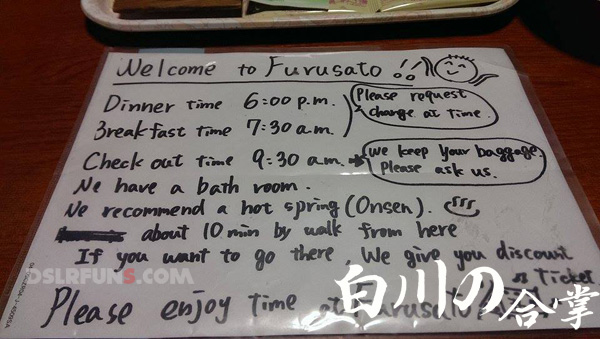 Welcome to Furusato!!
Dinner time 6:00 p.m.
Please request
change at time.
Breakfast time 7:30 a.m.
Check out time 9:30 a.m.
We keep your baggage.
Please ask us.
We have a bath room.
We recommend a hot spring (Onsen).
about 10 min by walk from here
If you want to go there, We give you discount
Ticket.
Please enjoy time at Furusato
DSLRFUNS.COM
白川の合掌